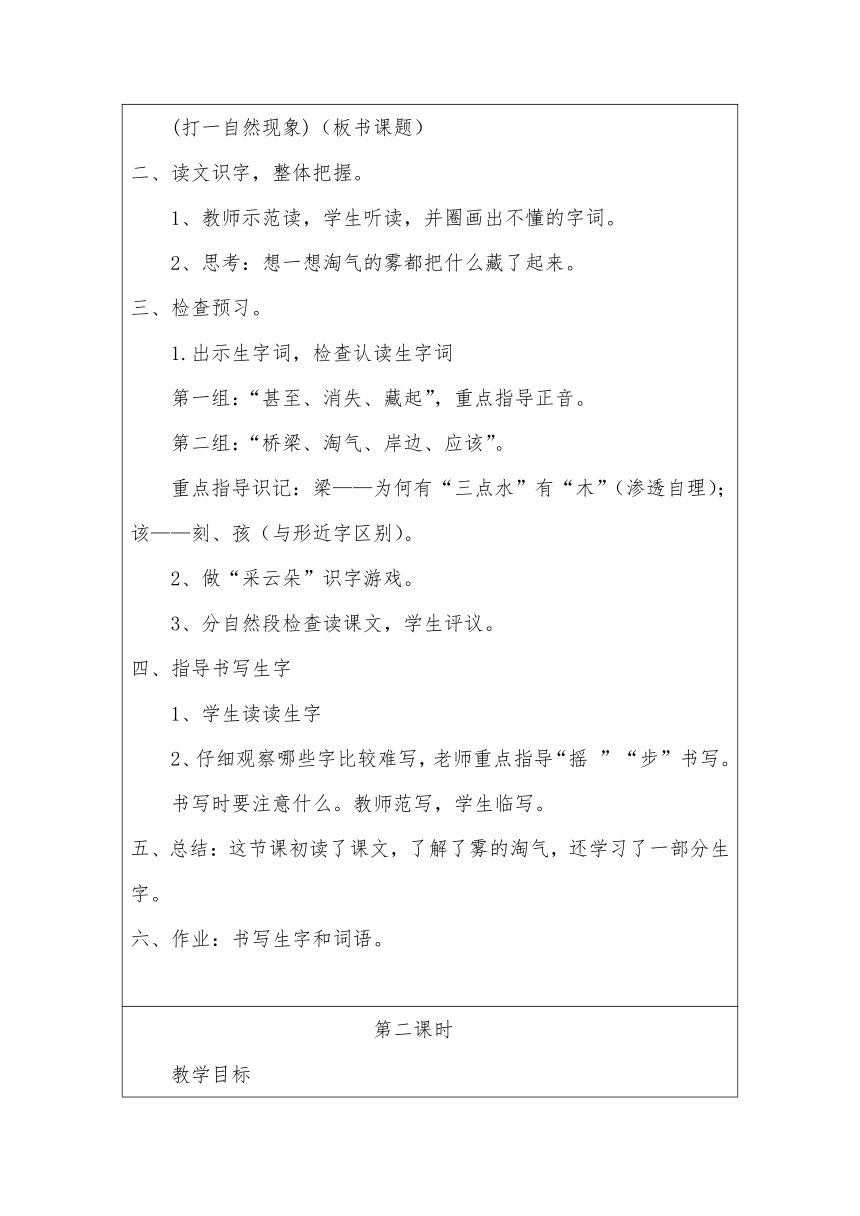 (打一自然现象)（板书课题）
二、读文识字，整体把握。
1、教师示范读，学生听读，并圈画出不懂的字词。
2、思考：想一想淘气的雾都把什么藏了起来。
三、检查预习。
1.出示生字词，检查认读生字词
第一组：“甚至、消失、藏起”，重点指导正音。
第二组：“桥梁、淘气、岸边、应该”。
重点指导识记：梁——为何有“三点水”有“木”（渗透自理）；
该——刻、孩（与形近字区别）。
2、做“采云朵”识字游戏。
3、分自然段检查读课文，学生评议。
四、指导书写生字
1、学生读读生字
2、仔细观察哪些字比较难写，老师重点指导“摇 ”“步”书写。
书写时要注意什么。教师范写，学生临写。
五、总结：这节课初读了课文，了解了雾的淘气，还学习了一部分生
字。
六、作业：书写生字和词语。
第二课时
教学目标